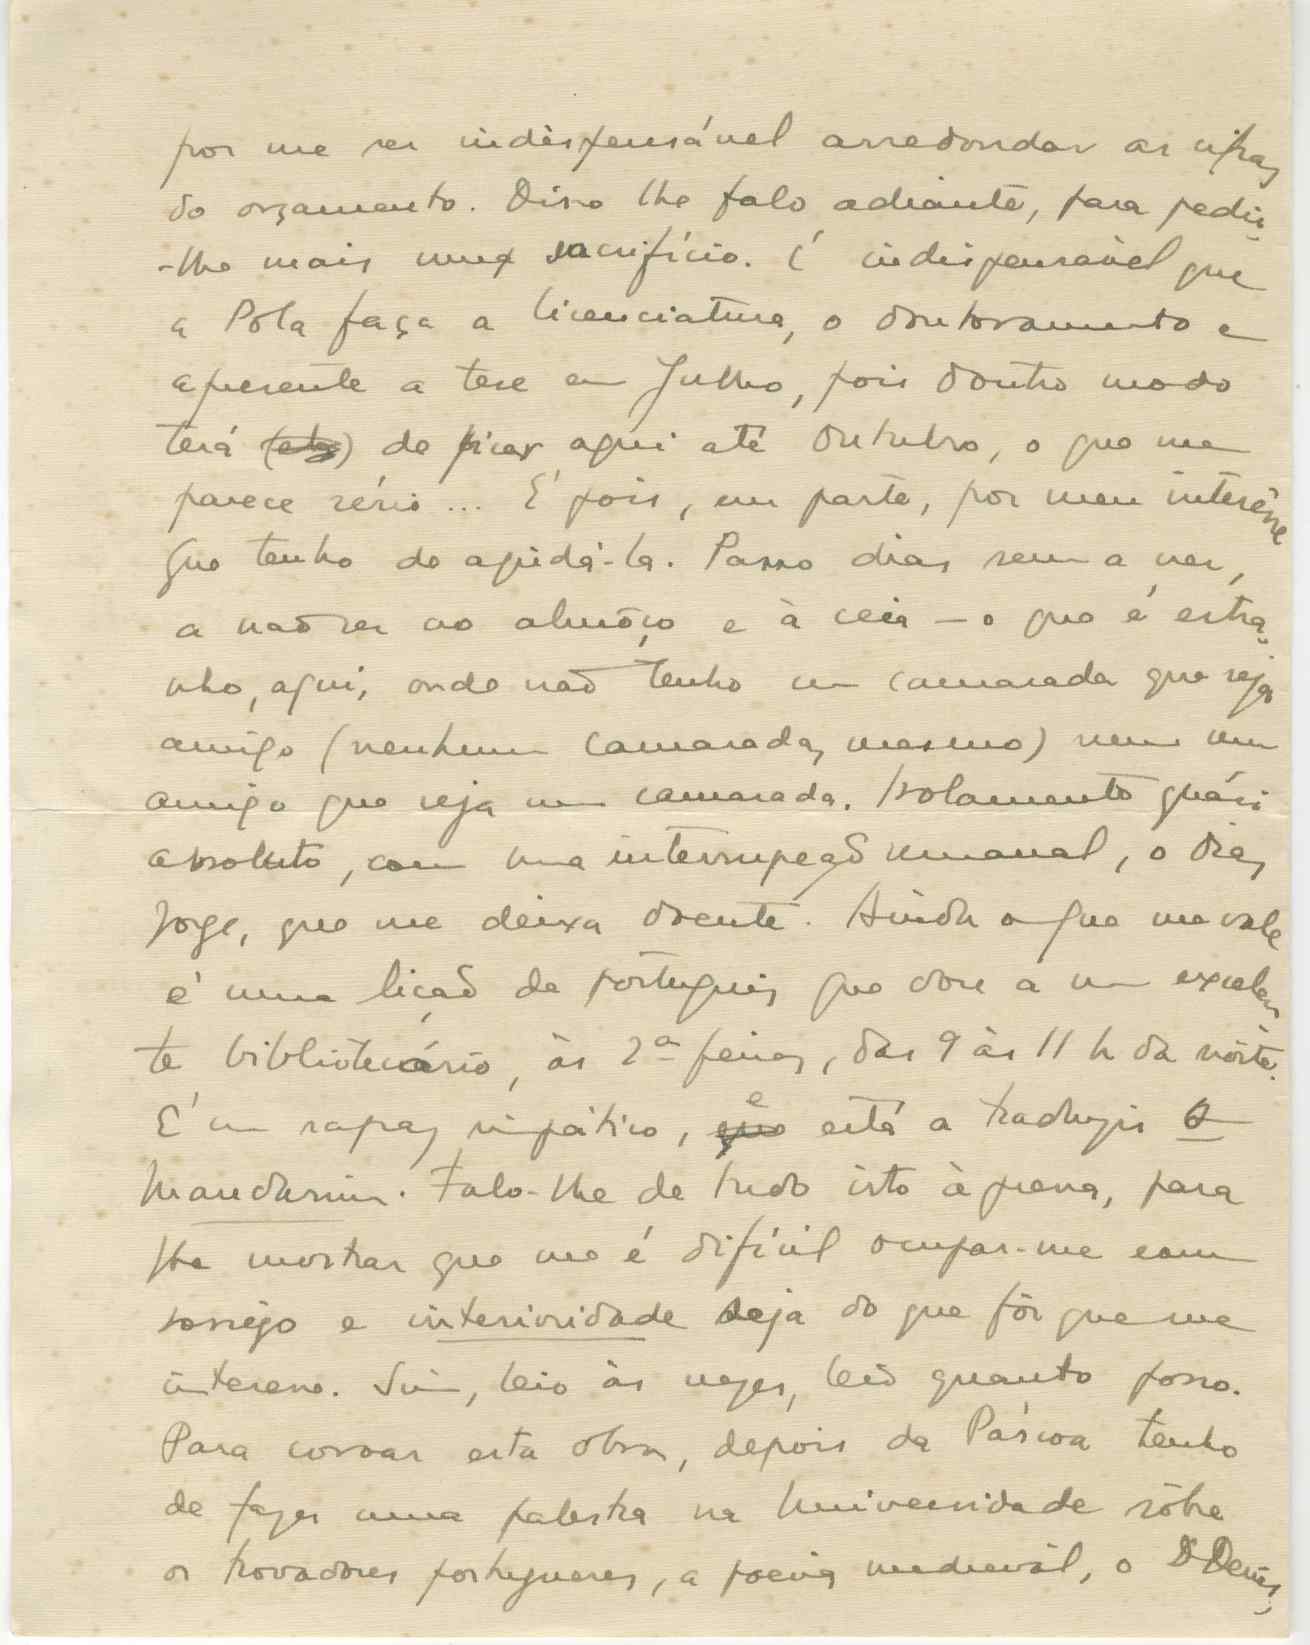 por me ser indispensável arredondar as cifras
do orçamento. Disso lhe falo adiante, para pedir-
-lhe mais um sacrifício. É indispensável que
a Pola faça a licenciatura, o doutoramento e
apresente a tese em Julho, pois doutro modo
terá de ficar aqui até Outubro, o que me
parece sério ... É pois, em parte, por meu interêsse
que tenho de ajudá-la. Passo dias sem a ver,
a não ser ao almôço e à ceia — o que é estra-
nho, aqui, onde não tenho um camarada que seja
amigo (nenhum camarada, mesmo) nem um
amigo que seja um camarada. Isolamento quási
absoluto, com uma interrupção semanal, o Dias
Jorge, que me deixa doente. Ainda o que me vale
é uma lição de português que dou a um excelen-
te bibliotecário, às 2ª feiras, das 9 às 11 h da noite.
É um rapaz simpático, e está a traduzir O
Mandarim. Falo-lhe de tudo isto à pressa, para
lhe mostrar que me é difícil ocupar-me com
sossêgo e interioridade seja do que fôr que me
interesse. Sim, leio às vezes, leio quanto posso.
Para coroar esta obra, depois da Páscoa tenho
de fazer uma palestra na Universidade sôbre
os trovadores portugueses, a poesia medieval, o D. Denis,